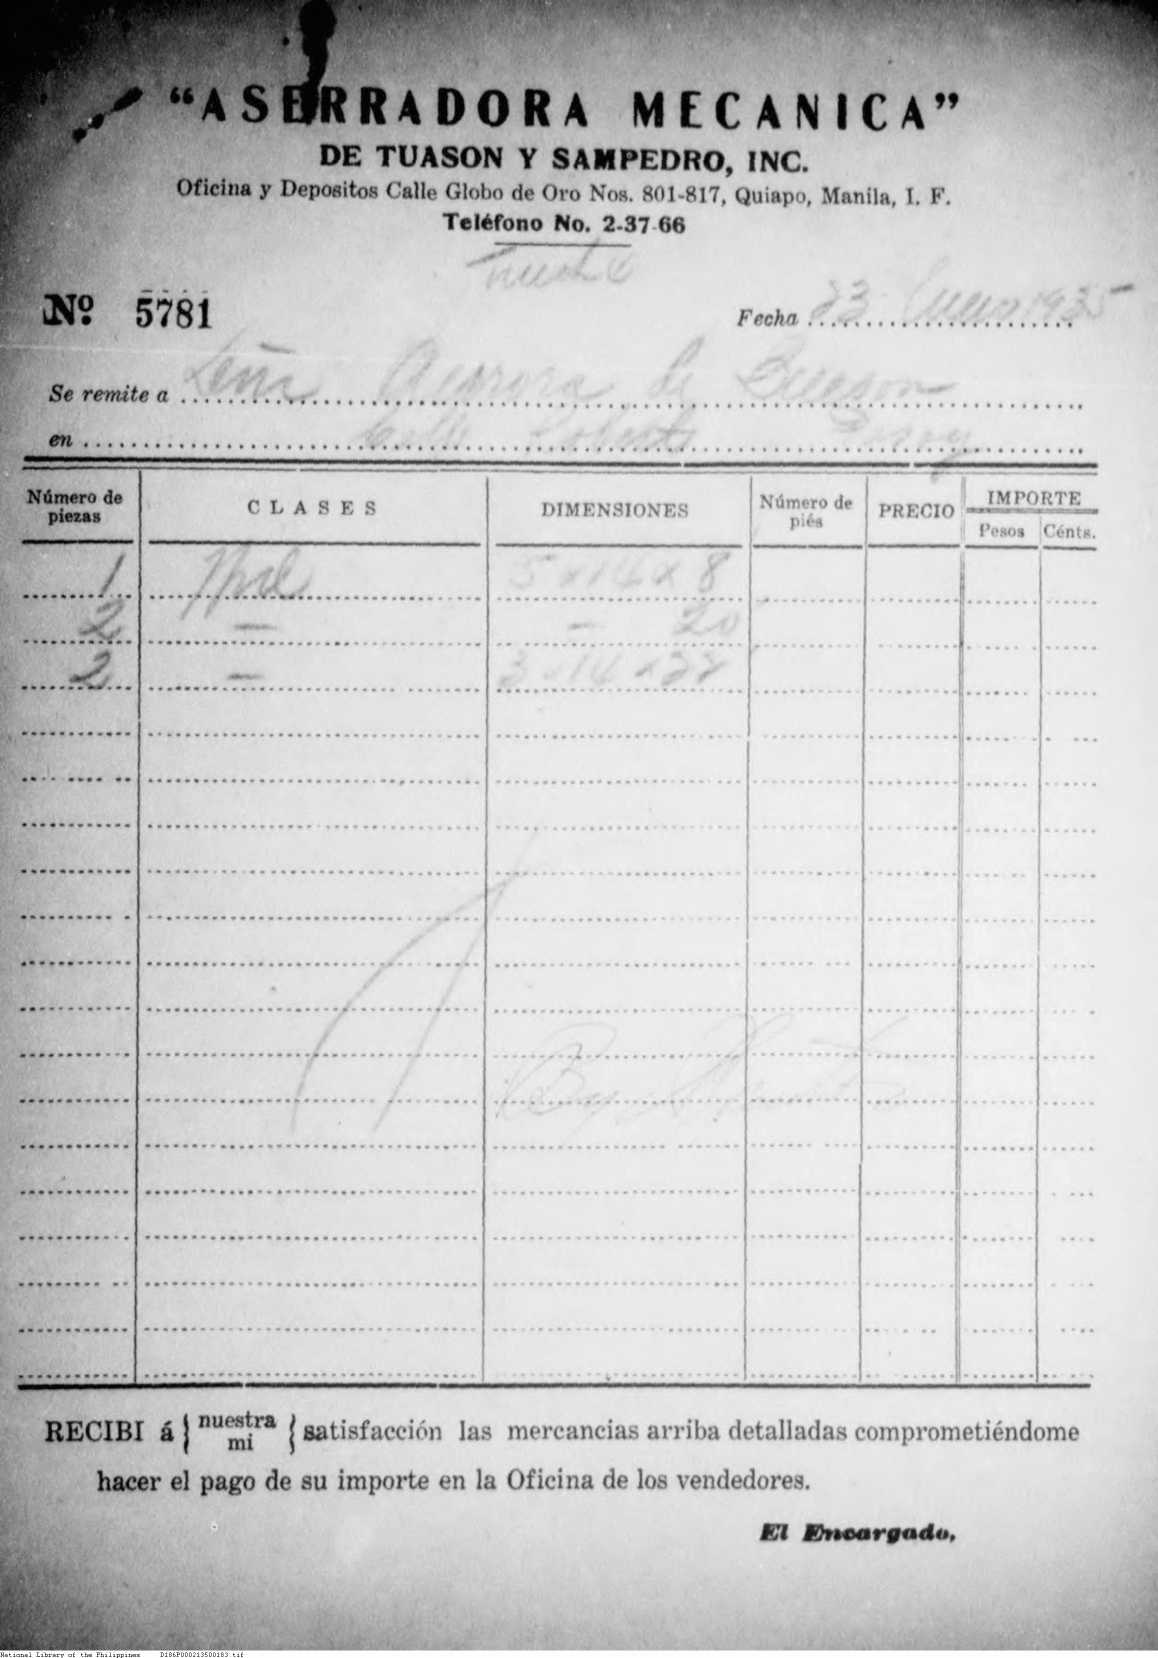 “ASERRADORA MECANICA”
DE TUASON Y SAMPEDRO, INC.
Oficina y Depositos Calle Globo de Oro Nos. 801-817, Quiapo, Manila, I. F.
Teléfono No. 2-37-66
Nº 5781 Fecha 23 Enero 1935
Se remite a Aurora de
en Calle
Número de piezas CLASES DIMENSIONES Número de piés PRECIO IMPORTE
Pesos Cénts.
1 5 x 14 x 8
2 — — 20
2 — 3 x 14 x
By
RECIBI á { nuestra mi { satisfacción las mercancias arriba detalladas comprometiéndome
hacer el pago de su importe en la Oficina de los vendedores.
El Encargado,
National Library of the Philippines D186P000213500183.tif